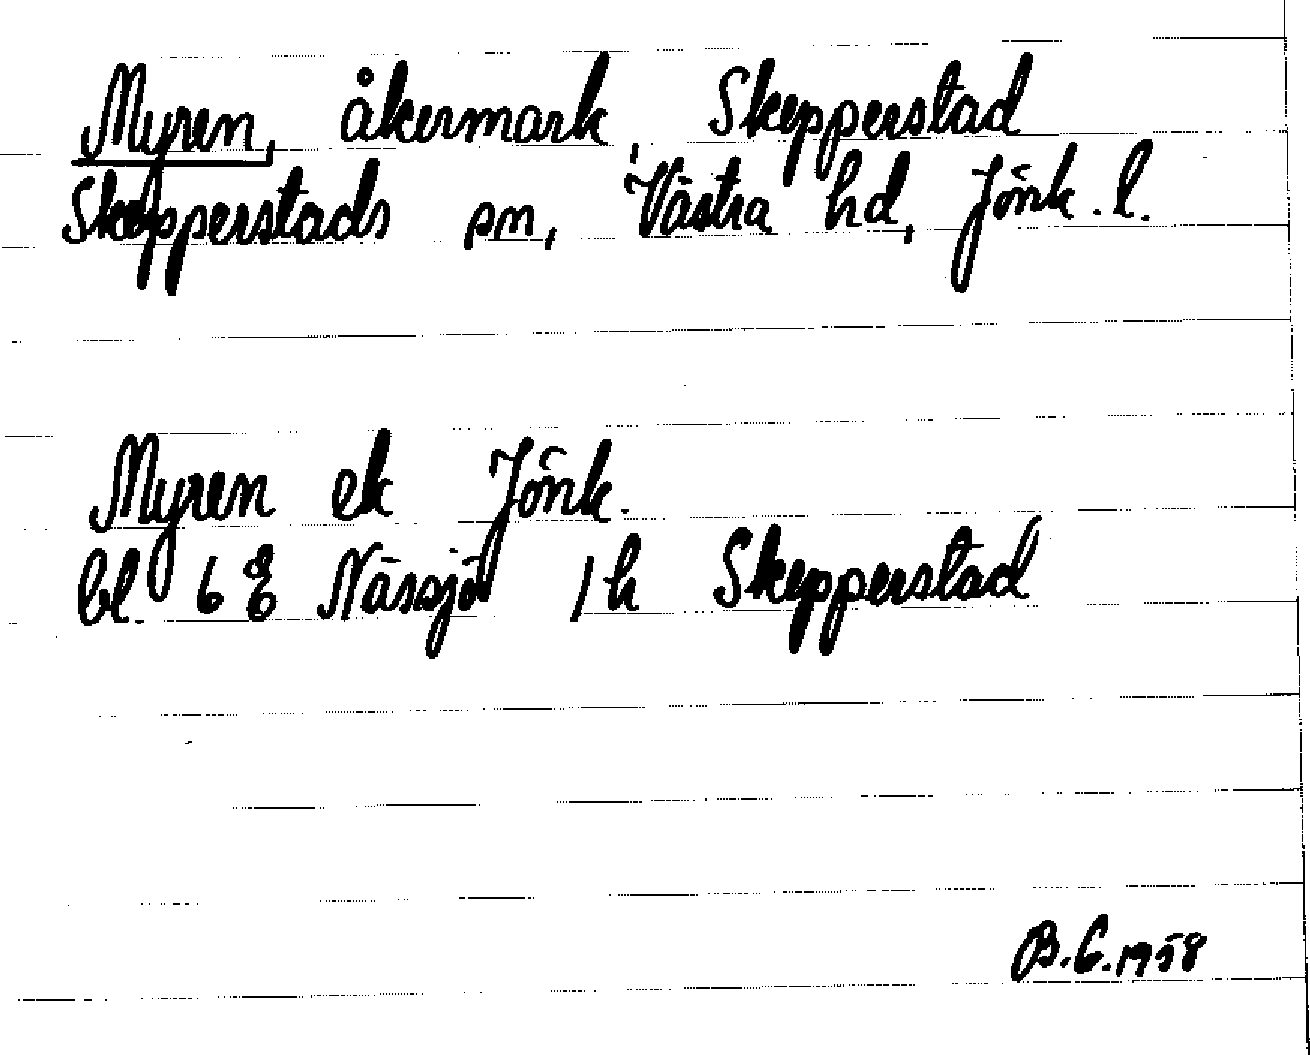 Myren, åkermark, Skepperstad
Skepperstads sn, Västra hd, Jönk. l.
Myren ek Jönk.
bl. 6 E Nässjö 1h Skepperstad
B.G. 1958